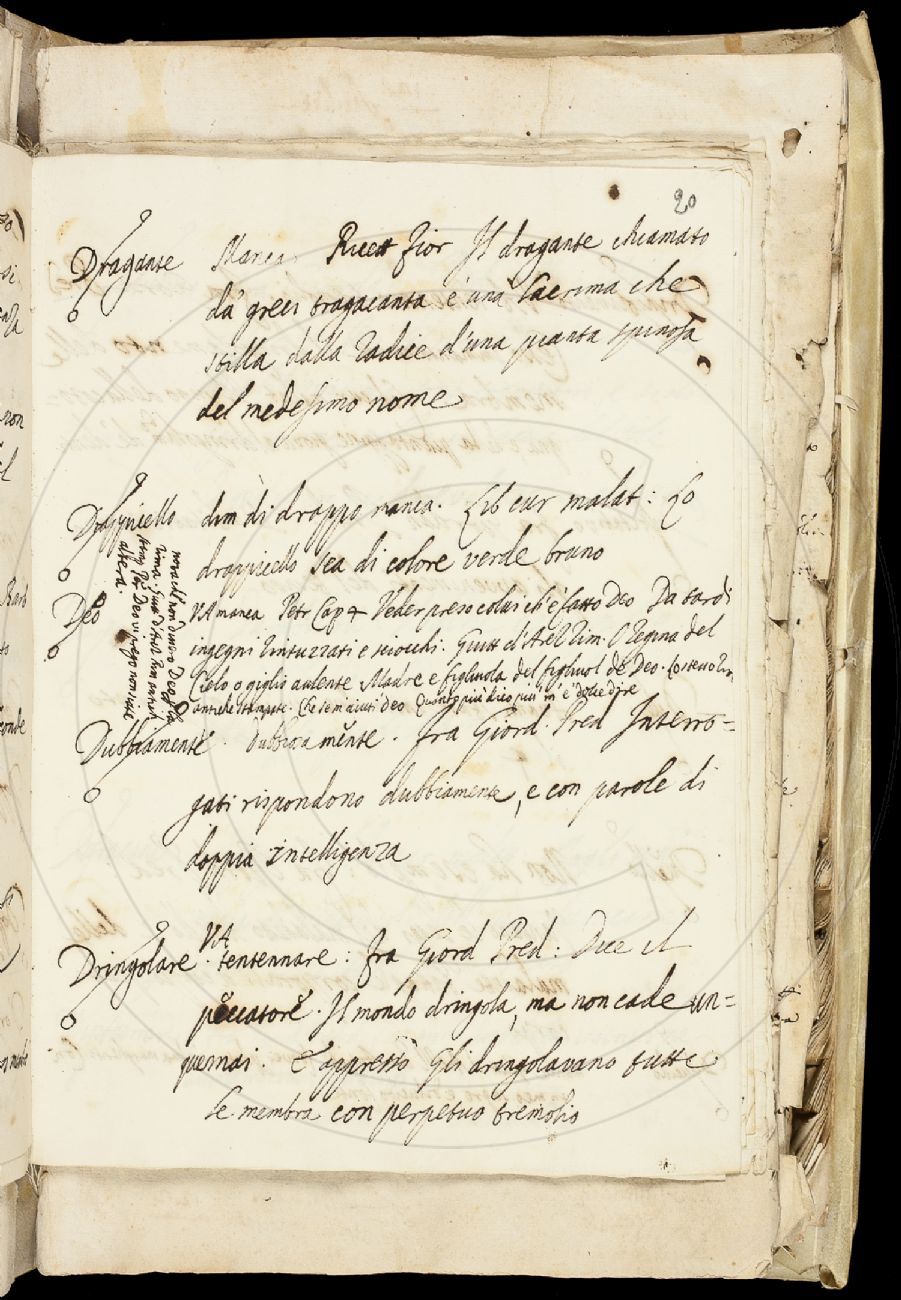 20
Dragante Manca. Ricett Fior Il dragante chiamato
da' greci tragacanta e' una lacrima che
stilla dalla radice d'una pianta spinosa
del medesimo nome
Drappicello dim di drappo manca. Lib cur malat: Lo
drappicello sea di colore verde bruno
Deo VA manca Petr Cap 4 Veder preso colui ch'è fatto Deo Da tardi
ingegni rintuzzati e sciocchi. Guitt d'Arez rim. O Regina del
Cielo o giglio aulente Madre e figliuola del figliuol de Deo. Lo stesso Rim
antiche stampate. Che se m'aiuti Deo Quanto più dico più m'è dolce dire
altera.
Dubbiamente. Dubbiamente. Fra Giord. Pred Interro=
gati rispondono dubbiamente, e con parole di
doppia intelligenza
Dringolare. VA tentennare: Fra Giord Pred: Dice il
peccatore. Il mondo dringola, ma non cade un=
quemai. E appresso Gli dringolavano tutte
le membra con perpetuo tremolio